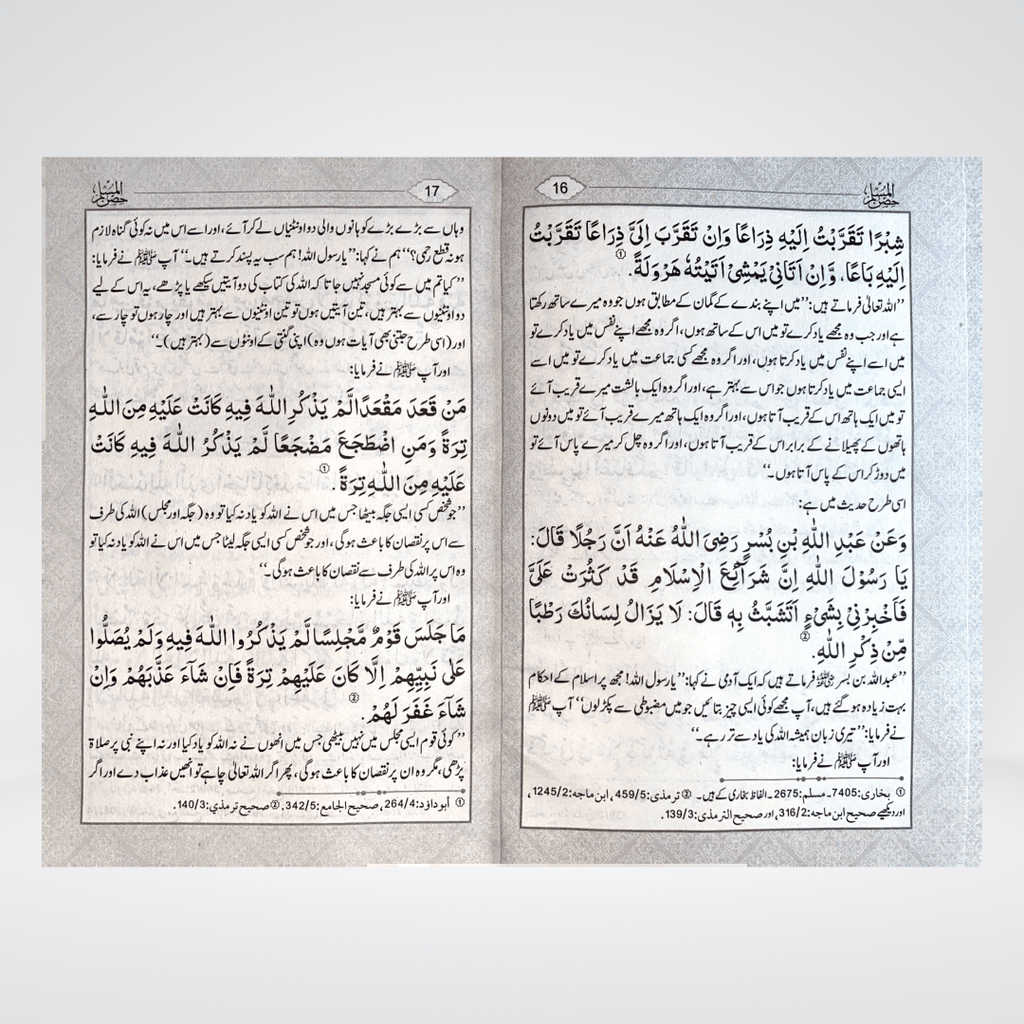 حصن المسلم
16
شِبْرًا تَقَرَّبْتُ اِلَيْهِ ذِرَاعًا وَاِنْ تَقَرَّبَ اِلَيَّ ذِرَاعًا تَقَرَّبْتُ
اِلَيْهِ بَاعًا، وَّاِنْ اَتَانِيْ يَمْشِيْ اَتَيْتُهٗ هَرْوَلَةً. ①
’’اللہ تعالیٰ فرماتے ہیں: ’’میں اپنے بندے کے گمان کے مطابق ہوں جو وہ میرے ساتھ رکھتا
ہے اور جب وہ مجھے یاد کرے تو میں اس کے ساتھ ہوں، اگر وہ مجھے اپنے نفس میں یاد کرے تو
میں اسے اپنے نفس میں یاد کرتا ہوں، اور اگر وہ مجھے کسی جماعت میں یاد کرے تو میں اسے
ایسی جماعت میں یاد کرتا ہوں جو اس سے بہتر ہے، اور اگر وہ ایک بالشت میرے قریب آئے
تو میں ایک ہاتھ اس کے قریب آتا ہوں، اور اگر وہ ایک ہاتھ میرے قریب آئے تو میں دونوں
ہاتھوں کے پھیلانے کے برابر اس کے قریب آتا ہوں، اور اگر وہ چل کر میرے پاس آئے تو
میں دوڑ کر اس کے پاس آتا ہوں۔‘‘
اسی طرح حدیث میں ہے:
وَعَنْ عَبْدِ اللّٰهِ بْنِ بُسْرٍ رَضِيَ اللّٰهُ عَنْهُ اَنَّ رَجُلًا قَالَ:
يَا رَسُوْلَ اللّٰهِ اِنَّ شَرَآئِعَ الْاِسْلَامِ قَدْ كَثُرَتْ عَلَيَّ
فَاَخْبِرْنِيْ بِشَيْءٍ اَتَشَبَّثُ بِهٖ قَالَ: لَا يَزَالُ لِسَانُكَ رَطْبًا
مِّنْ ذِكْرِ اللّٰهِ. ②
’’عبداللہ بن بسر رضی اللہ عنہ فرماتے ہیں کہ ایک آدمی نے کہا: ’’یا رسول اللہ! مجھ پر اسلام کے احکام
بہت زیادہ ہو گئے ہیں، آپ مجھے کوئی ایسی چیز بتائیں جو میں مضبوطی سے پکڑلوں‘‘ آپ ﷺ
نے فرمایا: ’’تیری زبان ہمیشہ اللہ کی یاد سے تر رہے۔‘‘
اور آپ ﷺ نے فرمایا:
① بخاری: 7405۔ مسلم: 2675۔ الفاظ بخاری کے ہیں۔ ② ترمذی: 459/5، ابن ماجہ: 1245/2،
اور دیکھیے صحیح ابن ماجہ: 316/2، اور صحیح الترمذی: 139/3.
حصن المسلم
17
وہاں سے بڑے بڑے کوہانوں والی دو اونٹنیاں لے کر آئے، اور اسے اس میں نہ کوئی گناہ لازم
ہو نہ قطع رحمی؟‘‘ ہم نے کہا: ’’یا رسول اللہ! ہم سب یہ پسند کرتے ہیں۔‘‘ آپ ﷺ نے فرمایا:
’’کیا تم میں سے کوئی مسجد نہیں جاتا کہ اللہ کی کتاب کی دو آیتیں سیکھے یا پڑھے، یہ اس کے لیے
دو اونٹنیوں سے بہتر ہیں، تین آیتیں ہوں تو تین اونٹنیوں سے بہتر ہیں اور چار ہوں تو چار سے،
اور (اسی طرح جتنی بھی آیات ہوں وہ) اپنی گنتی کے اونٹوں سے (بہتر ہیں)۔‘‘
اور آپ ﷺ نے فرمایا:
مَنْ قَعَدَ مَقْعَدًا لَّمْ يَذْكُرِ اللّٰهَ فِيهِ كَانَتْ عَلَيْهِ مِنَ اللّٰهِ
تِرَةً وَمَنِ اضْطَجَعَ مَضْجَعًا لَّمْ يَذْكُرُ اللّٰهَ فِيهِ كَانَتْ
عَلَيْهِ مِنَ اللّٰهِ تِرَةً. ①
’’جو شخص کسی ایسی جگہ بیٹھا جس میں اس نے اللہ کو یاد نہ کیا تو وہ (جگہ اور مجلس) اللہ کی طرف
سے اس پر نقصان کا باعث ہوگی، اور جو شخص کسی ایسی جگہ لیٹا جس میں اس نے اللہ کو یاد نہ کیا تو
وہ اس پر اللہ کی طرف سے نقصان کا باعث ہوگی۔‘‘
اور آپ ﷺ نے فرمایا:
مَا جَلَسَ قَوْمٌ مَّجْلِسًا لَّمْ يَذْكُرُوا اللّٰهَ فِيهِ وَلَمْ يُصَلُّوا
عَلٰى نَبِيِّهِمْ اِلَّا كَانَ عَلَيْهِمْ تِرَةً فَاِنْ شَآءَ عَذَّبَهُمْ وَاِنْ
شَآءَ غَفَرَ لَهُمْ. ②
’’کوئی قوم ایسی مجلس میں نہیں بیٹھی جس میں انھوں نے نہ اللہ کو یاد کیا اور نہ اپنے نبی پر صلاۃ
پڑھی، مگر وہ ان پر نقصان کا باعث ہوگی، پھر اگر اللہ تعالیٰ چاہے تو انھیں عذاب دے اور اگر
① أبوداؤد: 264/4، صحیح الجامع: 342/5. ② صحیح ترمذي: 140/3.